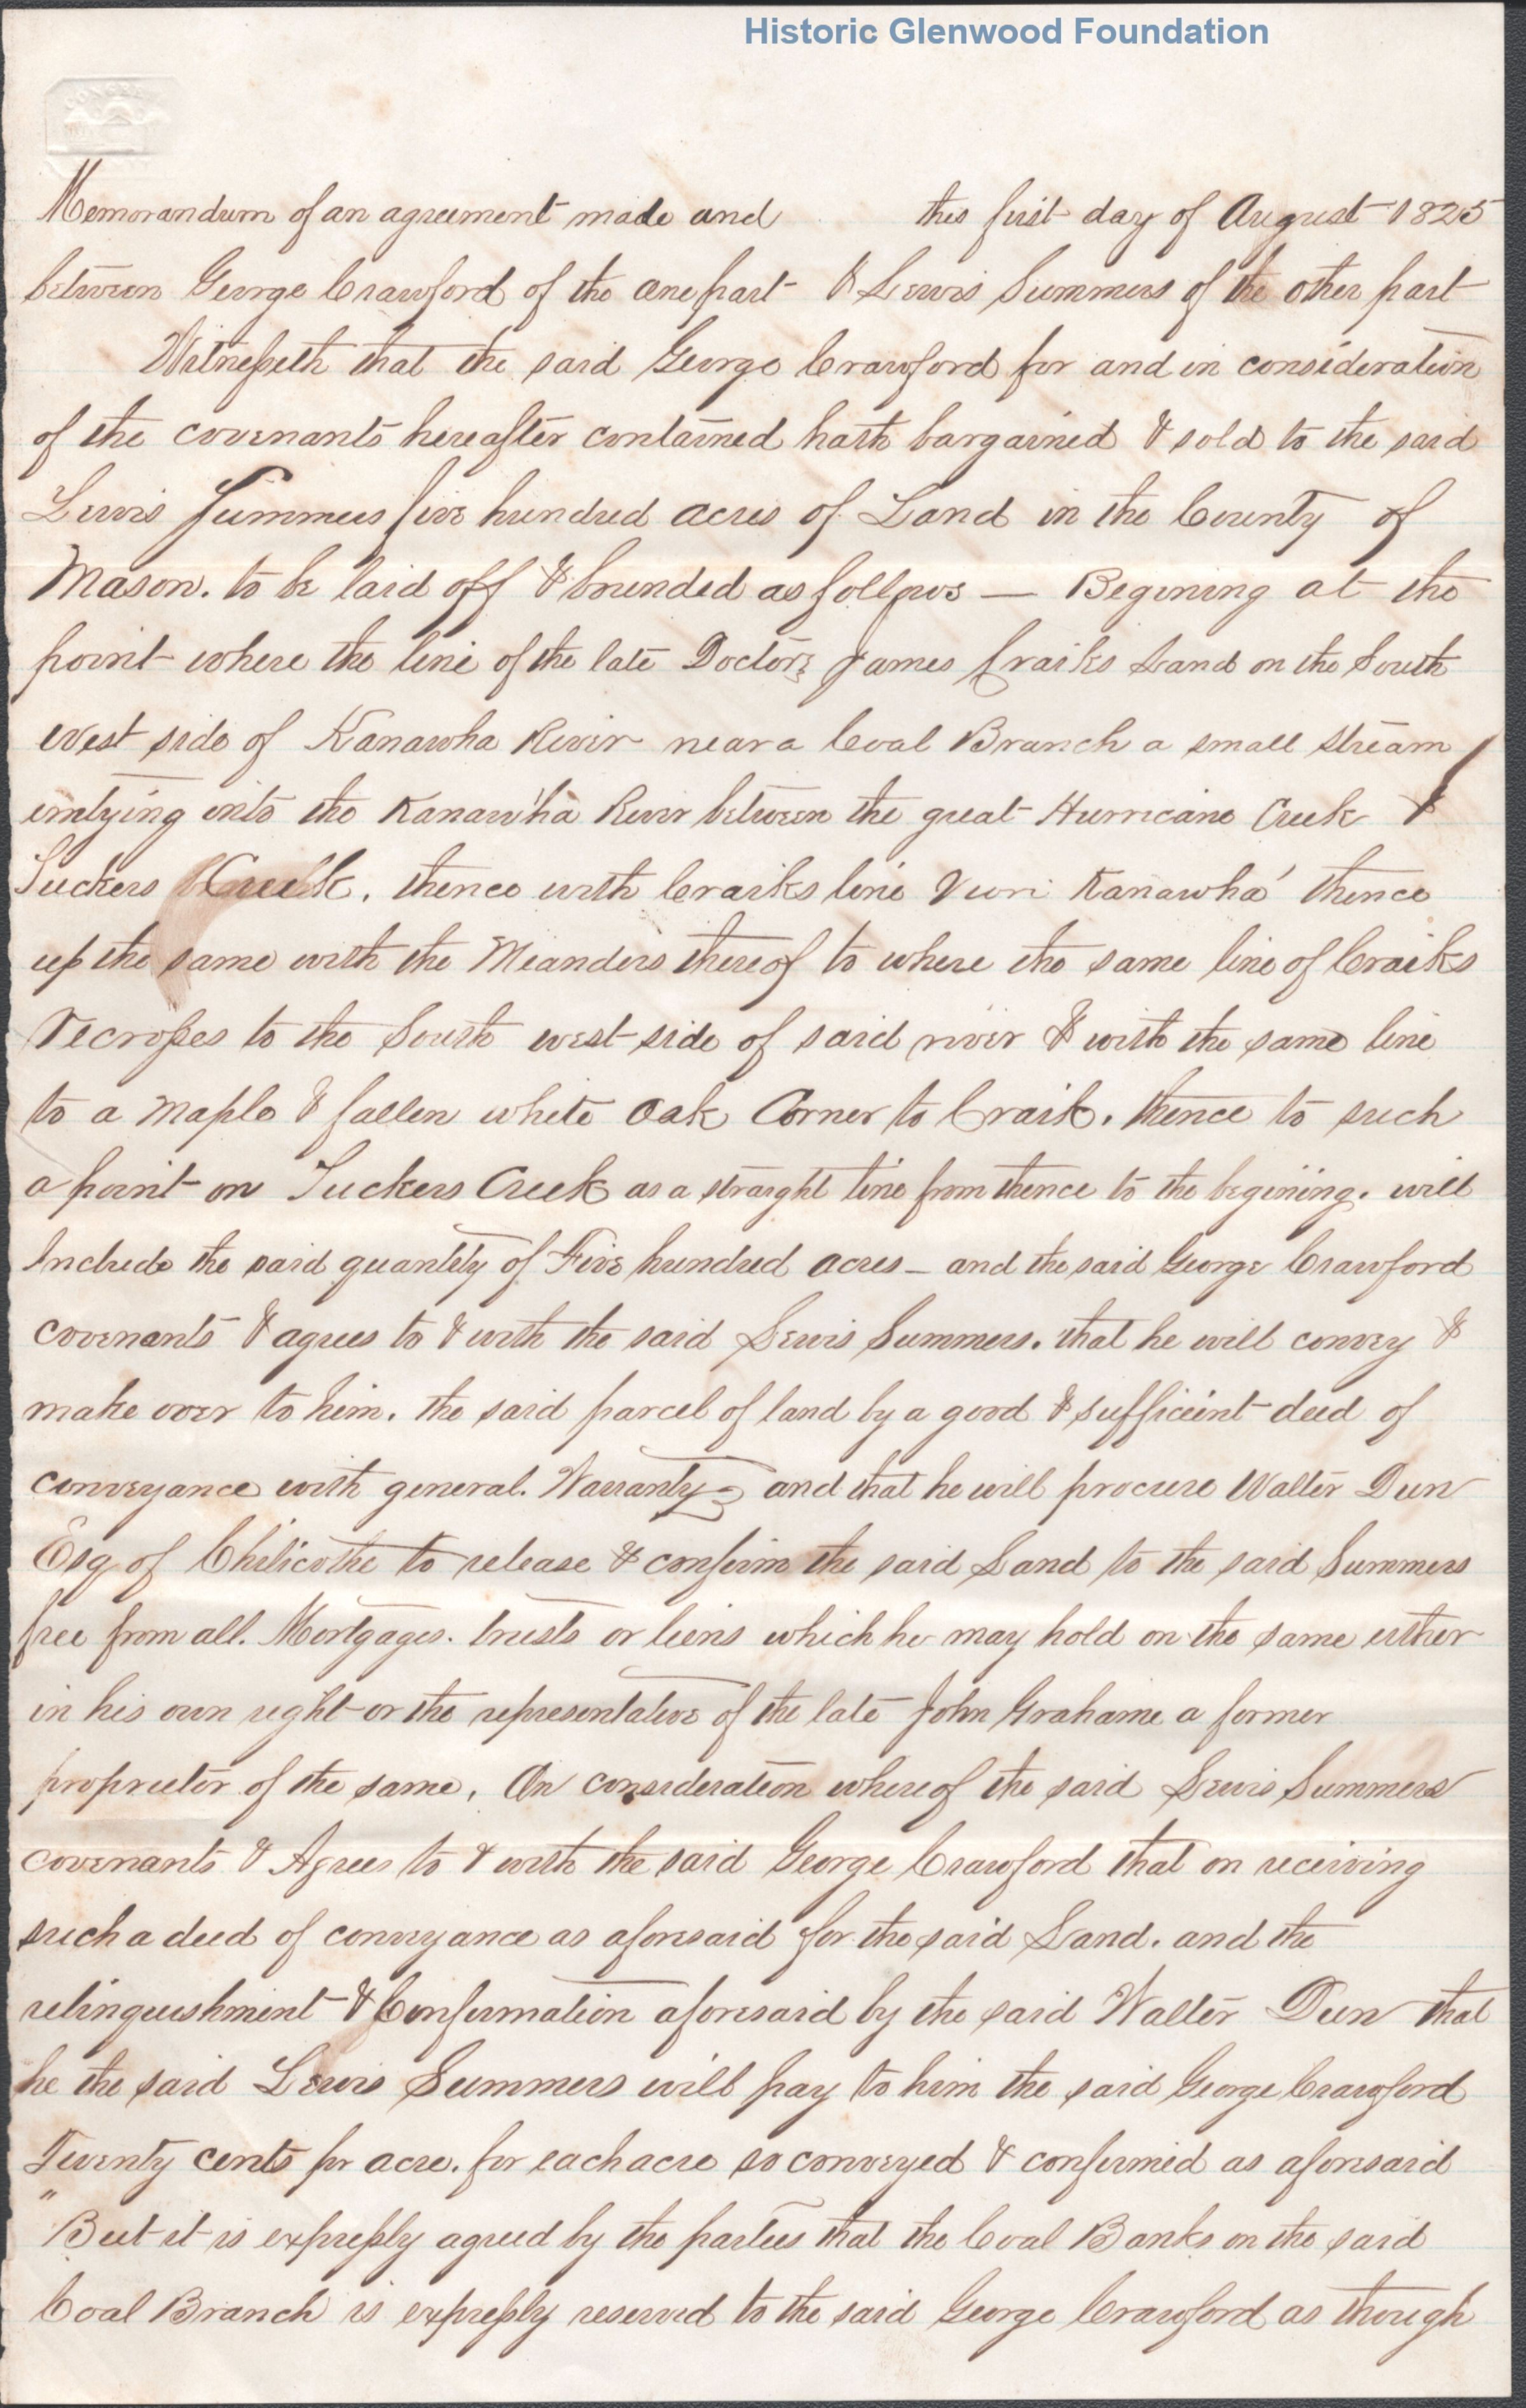 Historic Glenwood Foundation
CONGRESS
Memorandum of an agreement made and this first day of August 1825
between George Crawford of the one part & Lewis Summers of the other part
Witnesseth that the said George Crawford for and in consideration
of the covenants hereafter contained hath bargained & sold to the said
Lewis Summers five hundred acres of Land in the County of
Mason. to be laid off & bounded as follows — Begining at the
point where the line of the late Doctor James Craiks Land on the South
west side of Kanawha River near a Coal Branch a small stream
emtying into the Kanawha River between the great Hurricane Creek &
Tuckers Creek. thence with Craiks line Kanawha thence
up the same with the Meanders thereof to where the same line of Craiks
recrosses to the South west side of said river & with the same line
to a maple & fallen white oak Corner to Craik. thence to such
a point on Tuckers Creek as a straight line from thence to the begining. will
Include the said quantity of Five hundred acres – and the said George Crawford
covenants & agrees to & with the said Lewis Summers. that he will convey &
make over to him. the said parcel of land by a good & sufficient deed of
conveyance with general. Warranty – and that he will procure Walter Dun
Esq of Chilicothe to release & confirm the said Land to the said Summers
free from all. Mortgages. trusts or liens which he may hold on the same either
in his own right or the representative of the late John Grahame a former
proprietor of the same. In consideration whereof the said Lewis Summers
covenants & Agrees to & with the said George Crawford that on receiving
such a deed of conveyance as aforesaid for the said Land. and the
relinquishment & Confirmation aforesaid by the said Walter Dun that
he the said Lewis Summers will pay to him the said George Crawford
Twenty cents pr acre. for each acre so conveyed & confirmed as aforesaid
"But it is expressly agreed by the parties that the Coal Banks on the said
Coal Branch is expressly reserved to the said George Crawford as though